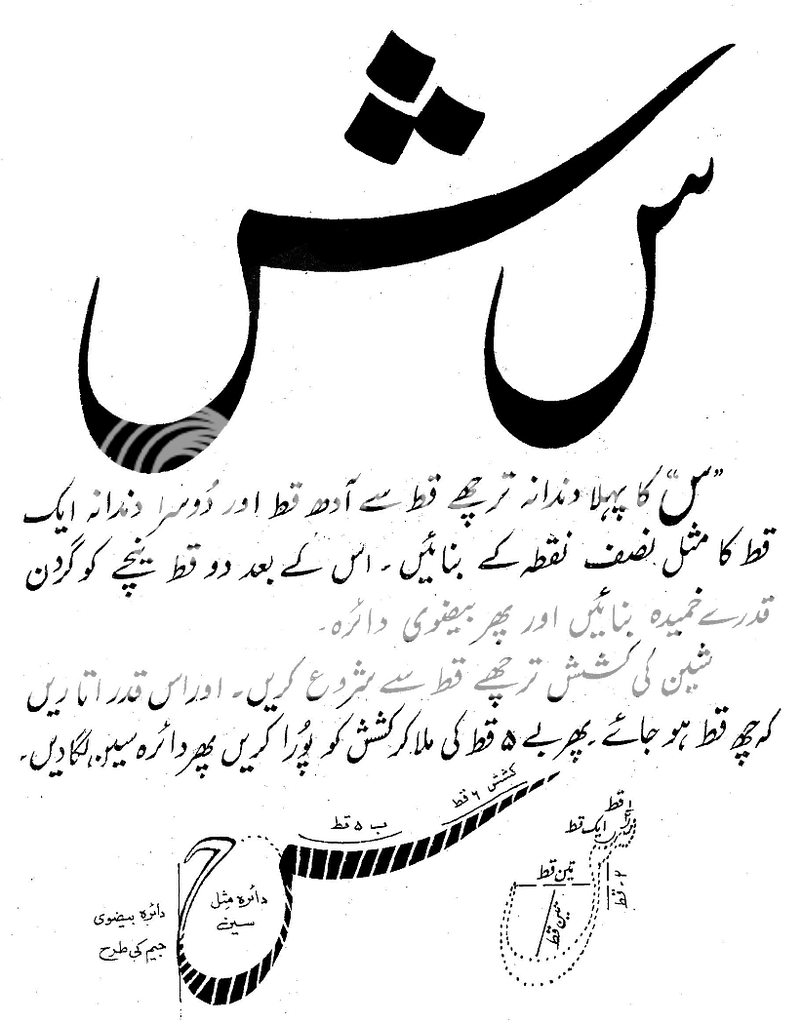 ش س
”س“ کا پہلا دندانہ ترچھے قط سے آدھ قط اور دُوسرا دندانہ ایک
قط کا مثل نصف نقطہ کے بنائیں۔ اس کے بعد دو قط نیچے کو گردن
قدرے خمیدہ بنائیں اور پھر بیضوی دائرہ۔
شین کی کشش ترچھے قط سے شروع کریں۔ اور اس قدر اتاریں
کہ چھ قط ہو جائے۔ پھر بے ۵ قط کی ملا کر کشش کو پُورا کریں پھر دائرہ سین لگا دیں۔
کشش ۶ قط
ب ۵ قط
دائرہ مثل
سینے
دائرہ بیضوی
جیم کی طرح
قط
ایک قط
۲ قط
تین قط
تین قط